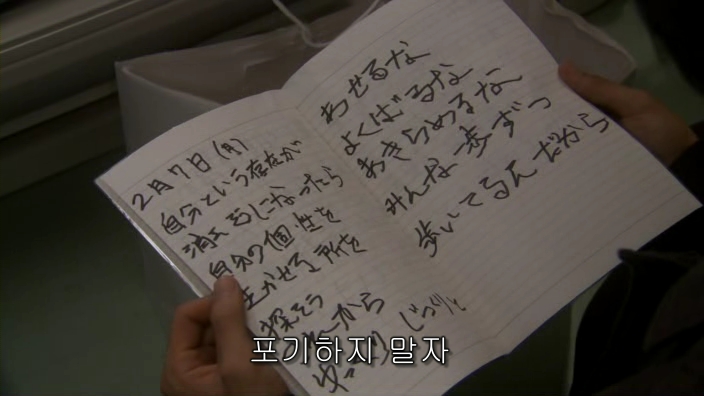 2月7日(月)
自分という存在が
消えそうになったら
自分の個性を
生かせる所を
探そう
それから
ゆっくり じっくりと
あせるな
よくばるな
あきらめるな
みんな一歩ずつ
歩いてるんだから
포기하지 말자